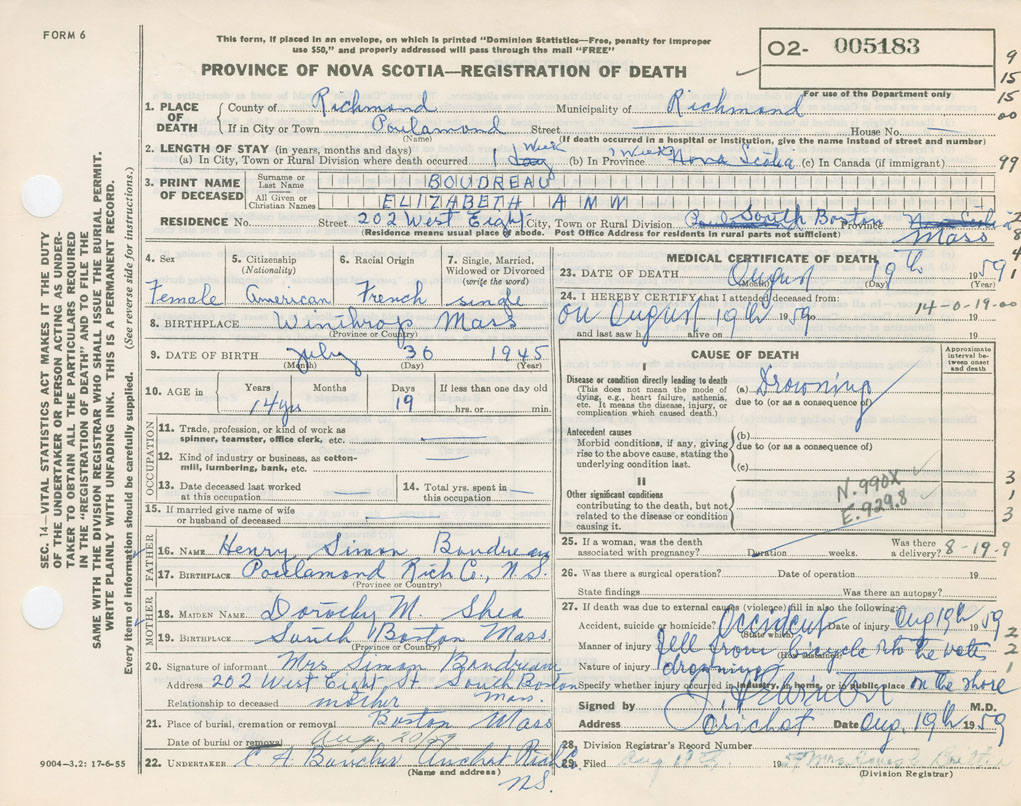 FORM 6
This form, if placed in an envelope, on which is printed "Dominion Statistics—Free, penalty for improper
use $50," and properly addressed will pass through the mail "FREE"
PROVINCE OF NOVA SCOTIA—REGISTRATION OF DEATH
O2- 005183
For use of the Department only
9
15
15
00
99
1. PLACE OF DEATH
County of Richmond Municipality of Richmond
If in City or Town Poulamond Street — House No. —
(Name) (If death occurred in a hospital or institution, give the name instead of street and number)
2. LENGTH OF STAY (in years, months and days)
(a) In City, Town or Rural Division where death occurred 1 Week (b) In Province 1 Week Nova Scotia (c) In Canada (if immigrant)
3. PRINT NAME OF DECEASED
Surname or Last Name BOUDREAU
All Given or Christian Names ELIZABETH ANN
RESIDENCE No. Street 202 West Eight City, Town or Rural Division South Boston Province Mass
(Residence means usual place of abode. Post Office Address for residents in rural parts not sufficient)
4. Sex Female
5. Citizenship (Nationality) American
6. Racial Origin French
7. Single, Married, Widowed or Divorced (write the word) single
8. BIRTHPLACE Winthrop Mass
(Province or Country)
9. DATE OF BIRTH July 30 1945
(Month) (Day) (Year)
10. AGE in Years 14 yrs Months Days 19 If less than one day old hrs. or min.
OCCUPATION
11. Trade, profession, or kind of work as spinner, teamster, office clerk, etc. —
12. Kind of industry or business, as cotton-mill, lumbering, bank, etc. —
13. Date deceased last worked at this occupation —
14. Total yrs. spent in this occupation —
15. If married give name of wife or husband of deceased —
FATHER
16. NAME Henry Simon Boudreau
17. BIRTHPLACE Poulamond Rich Co., N.S.
(Province or Country)
MOTHER
18. MAIDEN NAME Dorothy M. Shea
19. BIRTHPLACE South Boston Mass
(Province or Country)
20. Signature of informant Mrs Simon Boudreau
Address 202 West Eight St South Boston Mass.
Relationship to deceased mother
21. Place of burial, cremation or removal Boston Mass
Date of burial or removal Aug. 20/59
22. UNDERTAKER Arichat Rich. N.S.
(Name and address)
MEDICAL CERTIFICATE OF DEATH
23. DATE OF DEATH August 19th 1959
(Month) (Day) (Year)
24. I HEREBY CERTIFY that I attended deceased from:
on August 19th 1959 to 19
14-0-19-00
and last saw h alive on 19
CAUSE OF DEATH
Approximate interval between onset and death
Disease or condition directly leading to death
(This does not mean the mode of dying, e.g., heart failure, asthenia, etc. It means the disease, injury, or complication which caused death.)
(a) Drowning
due to (or as a consequence of)
Antecedent causes
Morbid conditions, if any, giving rise to the above cause, stating the underlying condition last.
(b)
due to (or as a consequence of)
(c)
II
Other significant conditions
contributing to the death, but not related to the disease or condition causing it.
N.990X
E.929.8
3
1
3
25. If a woman, was the death associated with pregnancy? Duration weeks. Was there a delivery? 8-19-9
26. Was there a surgical operation? Date of operation 19
State findings Was there an autopsy?
27. If death was due to external causes (violence) fill in also the following:
Accident, suicide or homicide? Accident Date of injury Aug 19th 1959
(State which)
Manner of injury fell from bicycle into the water
Nature of injury drowning
Specify whether injury occurred in industry, in home, or in public place on the shore
Signed by M.D.
Address Arichat Date Aug. 19th 1959
2
2
1
28. Division Registrar's Record Number
29. Filed Aug 19th 1959
(Division Registrar)
SEC. 14—VITAL STATISTICS ACT MAKES IT THE DUTY
OF THE UNDERTAKER OR PERSON ACTING AS UNDER-
TAKER TO OBTAIN ALL THE PARTICULARS REQUIRED
IN THE "REGISTRATION OF DEATH" AND TO FILE THE
SAME WITH THE DIVISION REGISTRAR WHO SHALL ISSUE THE BURIAL PERMIT.
WRITE PLAINLY WITH UNFADING INK. THIS IS A PERMANENT RECORD.
Every item of information should be carefully supplied. (See reverse side for instructions.)
9004—3.2: 17-6-55